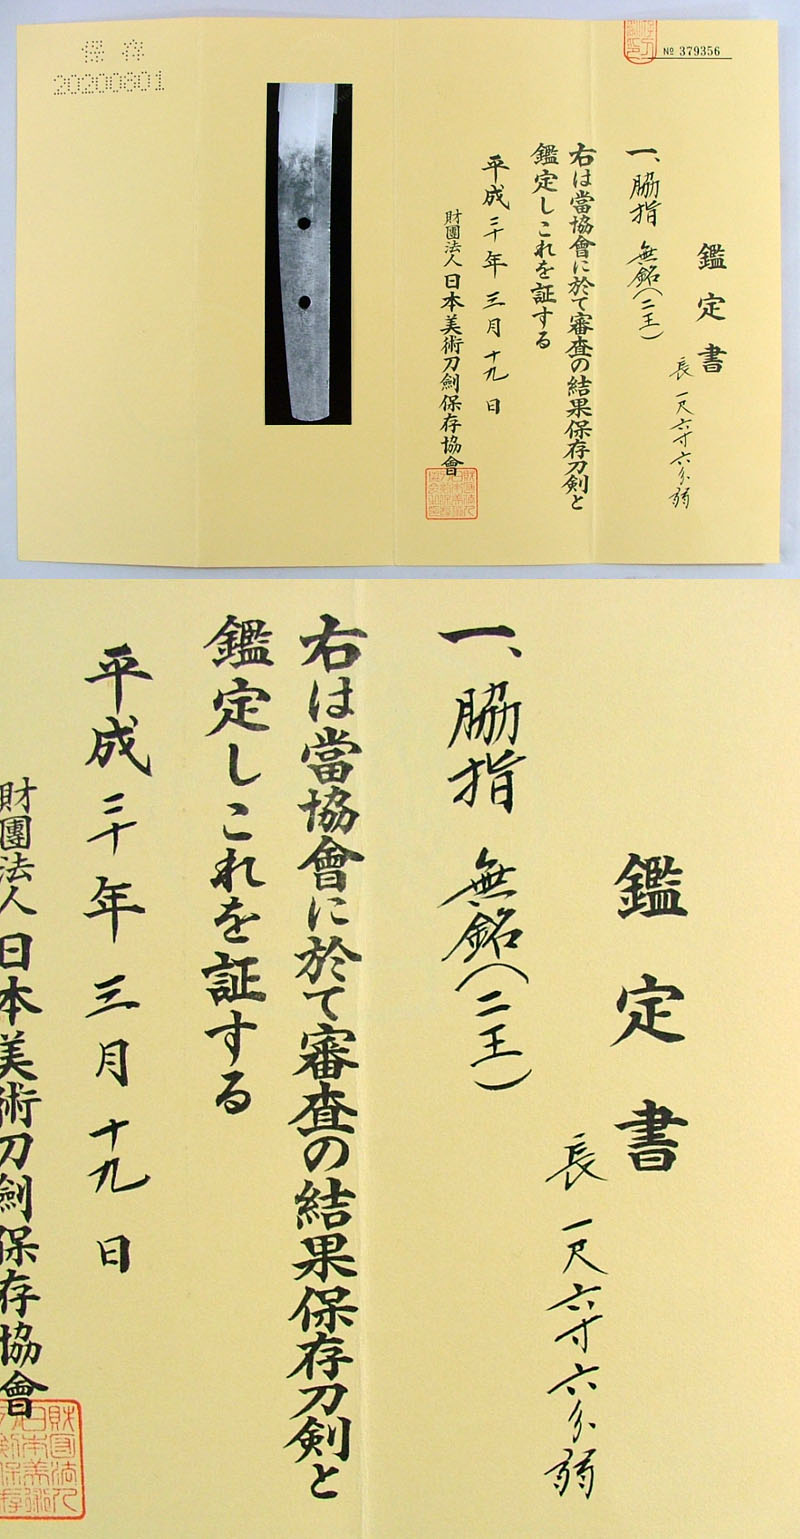 保存
20200801
№ 379356
鑑定書
長 一尺六寸六分弱
一、脇指 無銘(二王)
右は當協會に於て審査の結果保存刀剣と
鑑定しこれを証する
平成二十年三月十九日
財團法人日本美術刀劍保存協會
鑑定書
長 一尺六寸六分弱
一、脇指 無銘(二王)
右は當協會に於て審査の結果保存刀剣と
鑑定しこれを証する
平成二十年三月十九日
財團法人日本美術刀劍保存協會